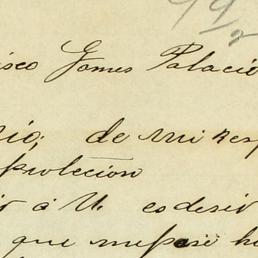 isco Gomes Palacio
rio; de mi Resp
protecion
ir á U. es desir
que me pase ha